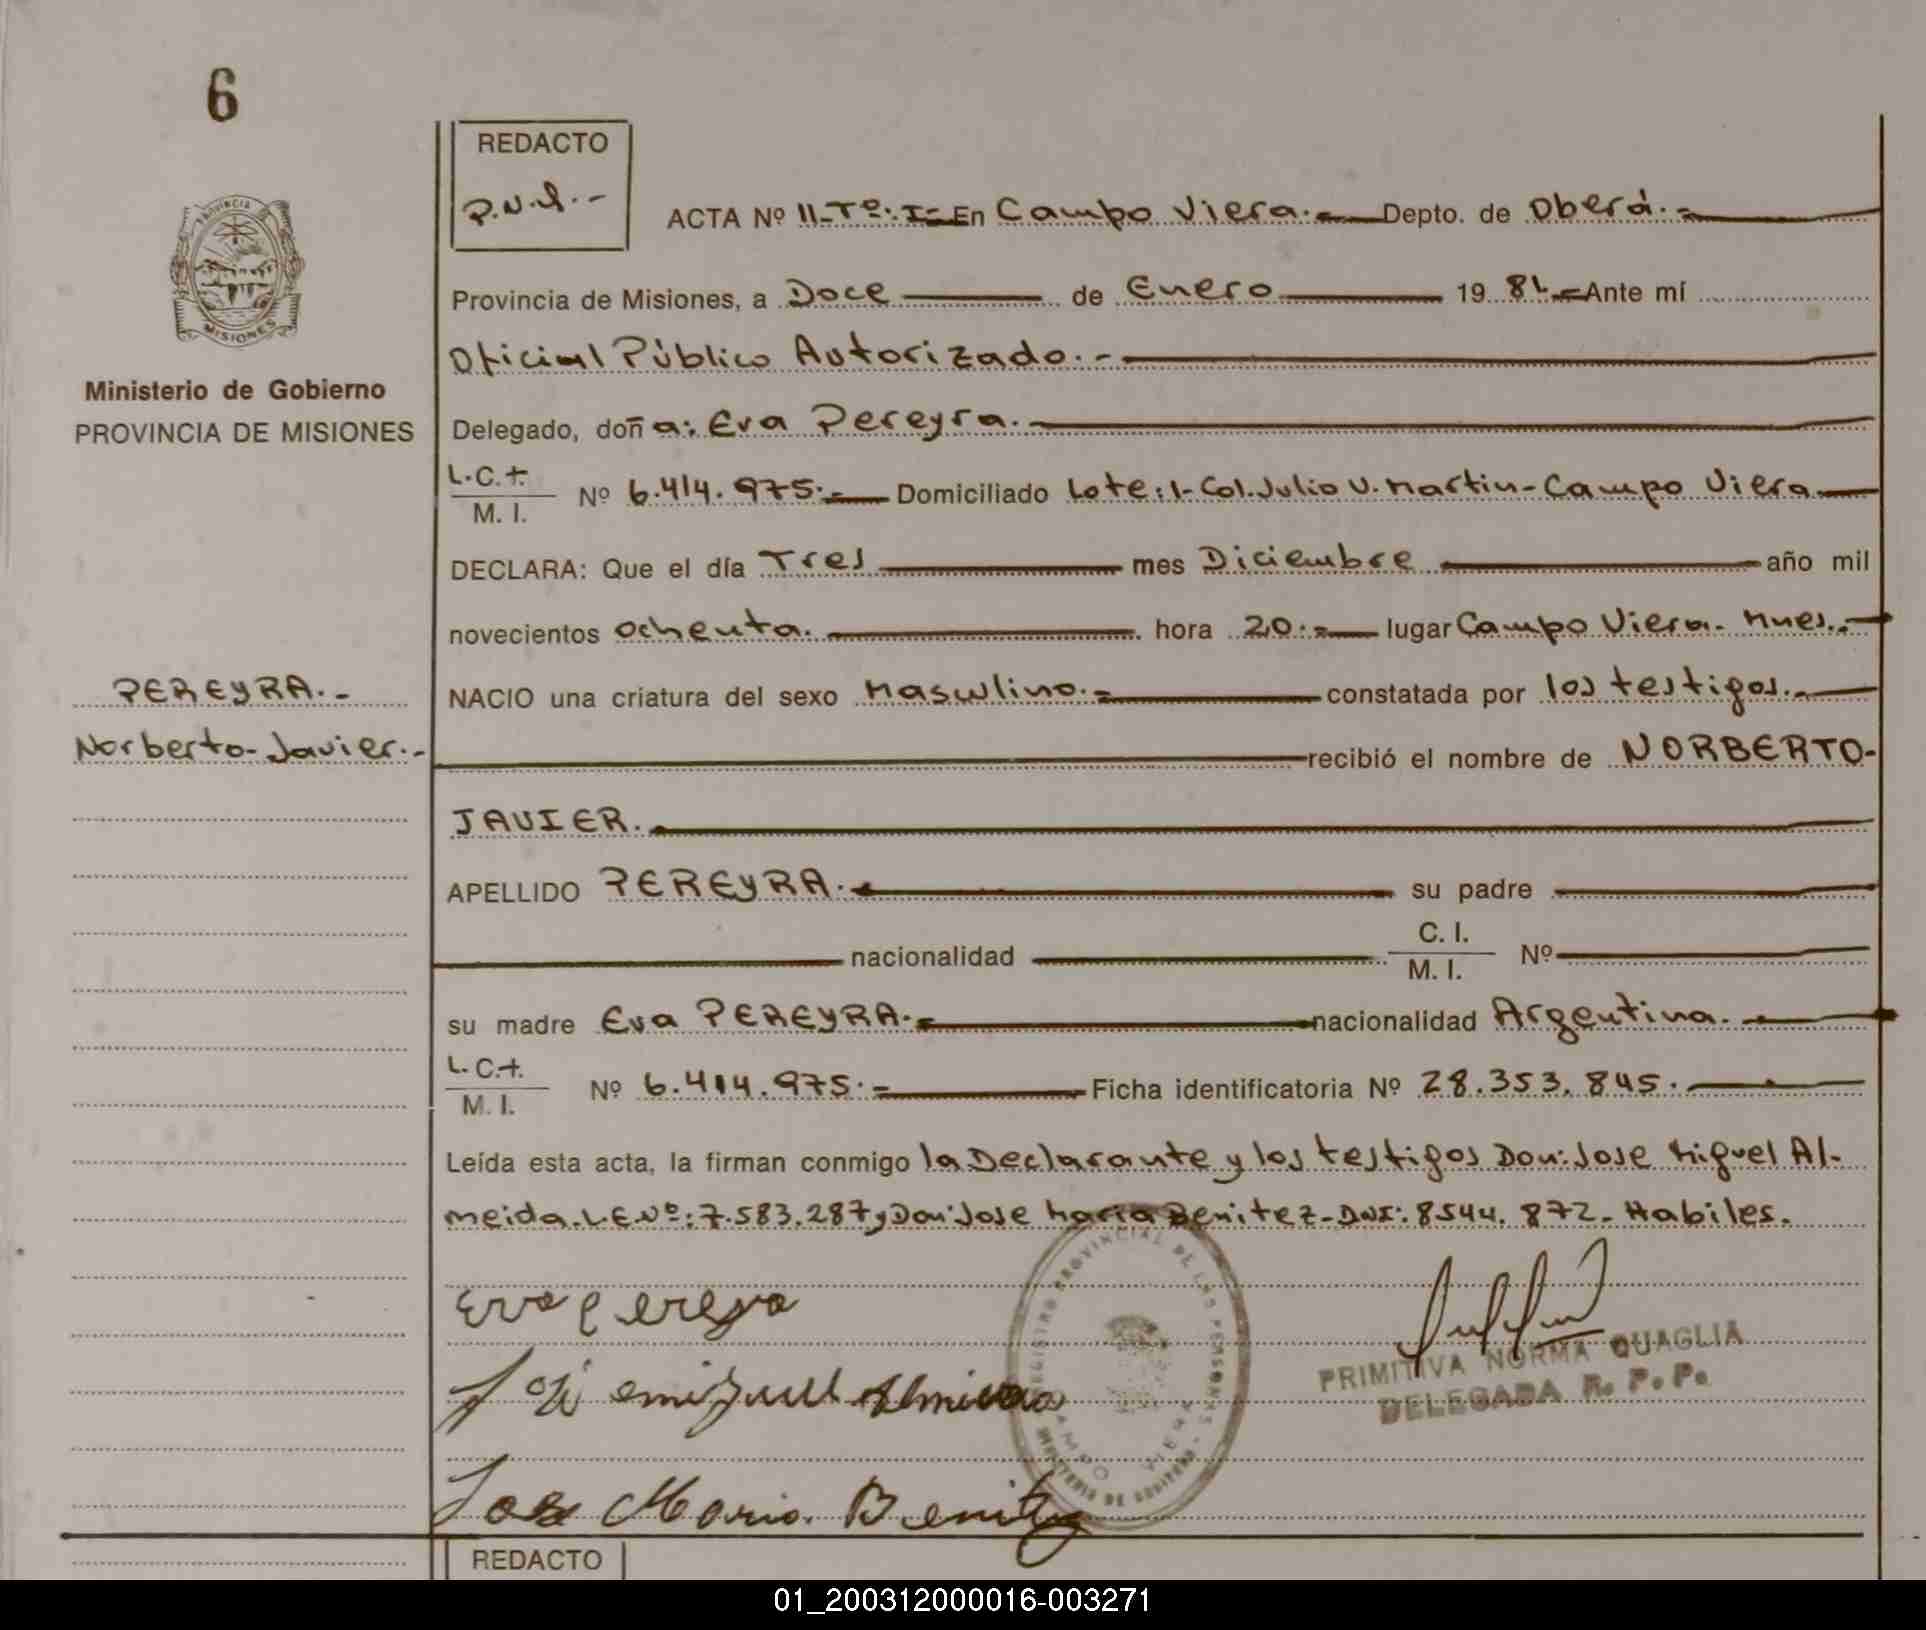 6
REDACTO
P.N.Q.-
ACTA Nº 11-Tº.I- En Campo Viera.- Depto. de Oberá.-
PROVINCIA
MISIONES
Provincia de Misiones, a Doce de Enero 19 81.- Ante mí
Oficial Público Autorizado.-
Ministerio de Gobierno
PROVINCIA DE MISIONES
Delegado, doña: Eva Pereyra.
L.C.t.
M. I. Nº 6.414.975.- Domiciliado Lote:1-Col.Julio U.Martin-Campo Viera.
DECLARA: Que el día Tres mes Diciembre año mil
novecientos ochenta. hora 20.- lugar Campo Viera. Mnes.-
PEREYRA.-
NACIO una criatura del sexo Masculino.- constatada por los testigos.-
Norberto-Javier.-
recibió el nombre de NORBERTO-
JAVIER.
APELLIDO PEREYRA.- su padre
nacionalidad C. I.
M. I. Nº
su madre Eva PEREYRA.- nacionalidad Argentina.
L.C.t.
M. I. Nº 6.414.975.- Ficha identificatoria Nº 28.353.845.
Leída esta acta, la firman conmigo la Declarante y los testigos Don:Jose Miguel Al-
meida.L.E.Nº:7.583.287 y Don:Jose Maria Benitez-DNI:8544.872.-Habiles.
REGISTRO PROVINCIAL DE LAS PERSONAS - MINISTERIO DE GOBIERNO
CAMPO VIERA
Eva pereyra
José miguel Almeida
PRIMITIVA NORMA QUAGLIA
DELEGADA R. P. P.
Jose Maria Benitez
REDACTO
01_200312000016-003271